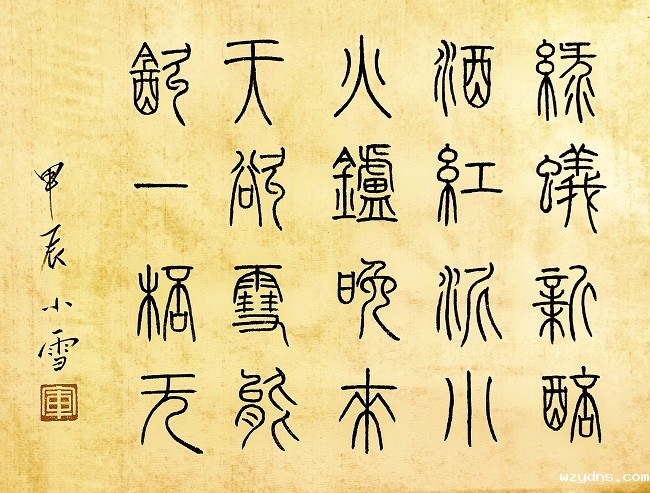 綠蟻新醅
酒紅泥小
火鑪晚來
天欲雪能
㱃一桮无
甲辰小雪
軍
wzydns.com